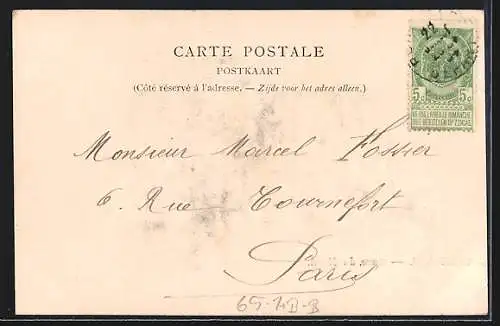 CARTE POSTALE
POSTKAART
(Côté réservé à l'adresse. — Zijde voor het adres alleen.)
5c 5c
NE PAS LIVRER LE DIMANCHE
NIET BESTELLEN OP ZONDAG
Monsieur Marcel Fossier
6. Rue Tournefort
Paris